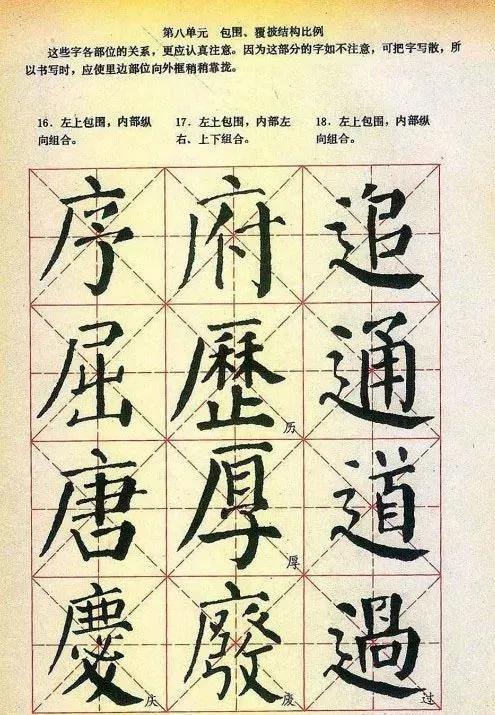 第八单元 包围、覆披结构比例
这些字各部位的关系，更应认真注意。因为这部分的字如不注意，可把字写散，所
以书写时，应使里边部位向外框稍稍靠拢。
16. 左上包围，内部纵
向组合。
17. 左上包围，内部左
右、上下组合。
18. 左上包围，内部纵
向组合。
序 府 追
屈 歷历 通
唐 厚厚 道
慶庆 廢废 過过